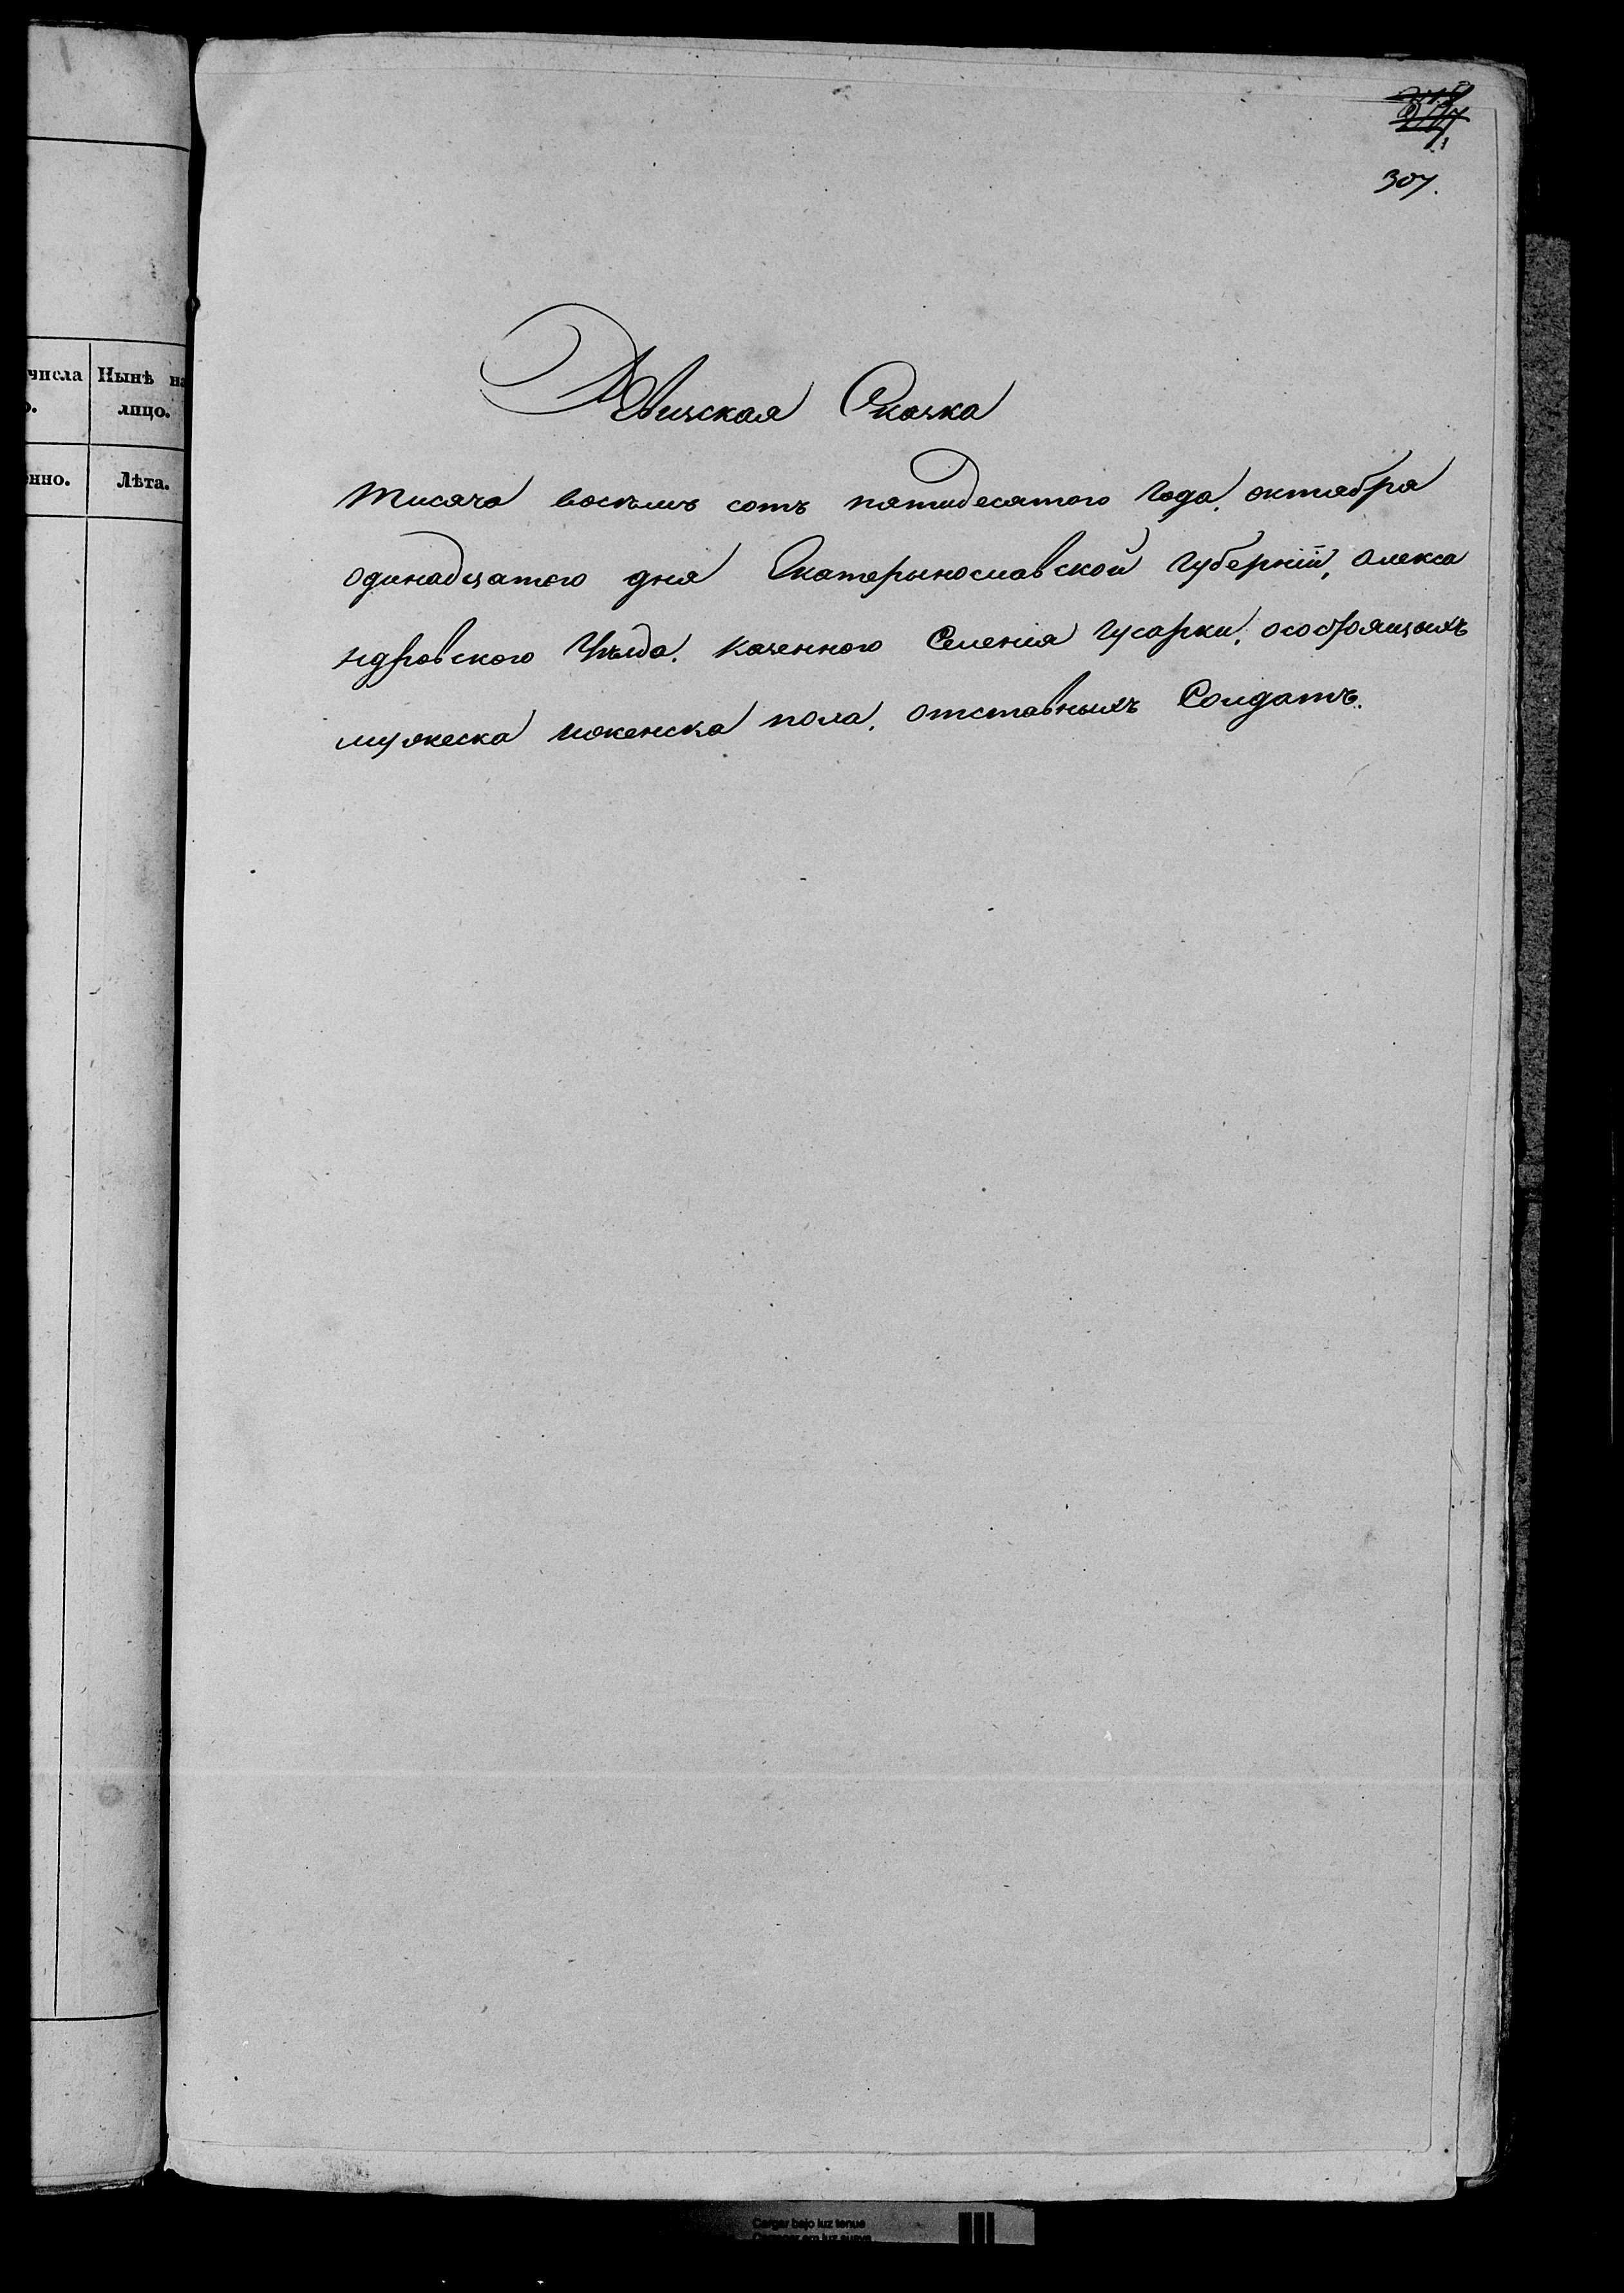 числа
Нынѣ на
лицо.
нно.
Лѣта.
307.
Ревиская Скаска
тисяча восемь сотъ пятидесятого года, октября
одинадцатого дня Екатериносмавской губерніи, алекса
ндровского Уезда. казенного Селенія Гусарки,
мужеска иженска пола, отставныхъ Солдатъ.
Cargar bajo luz tenue